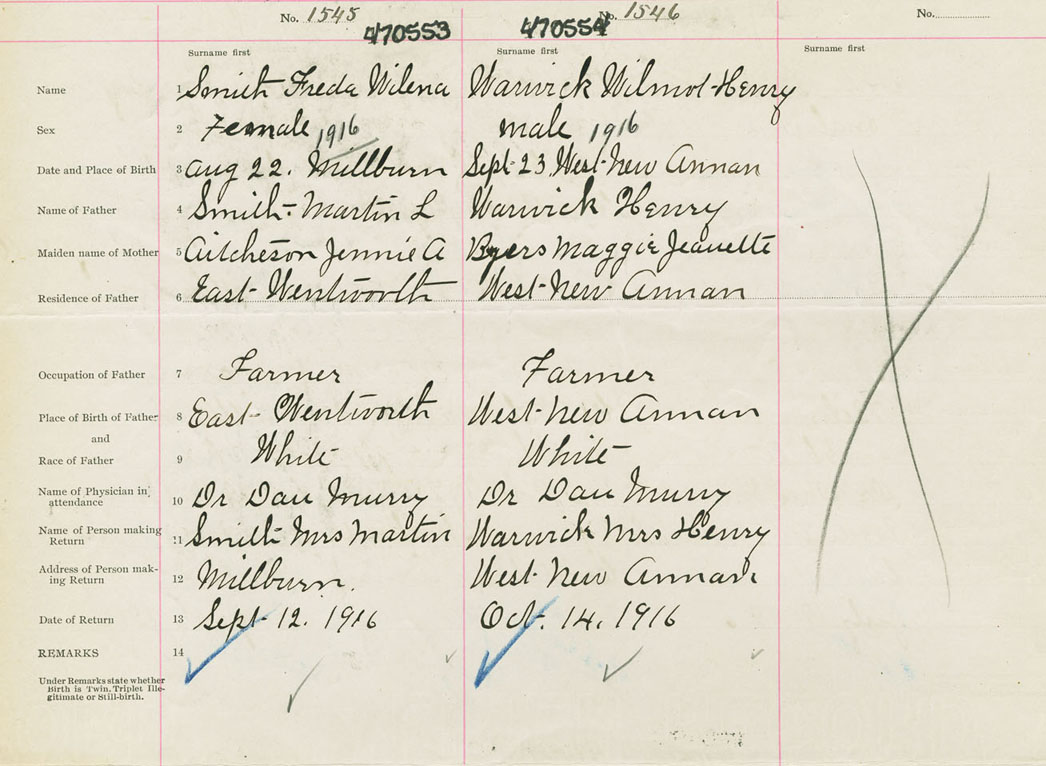 No. 1545 No. 1546 No.
470553 470554
Surname first Surname first Surname first
Name 1 Smith Freda Wilena Warwick Wilmot Henry
Sex 2 Female 1916 male 1916
Date and Place of Birth 3 Aug 22. Millburn Sept 23. West New Annan
Name of Father 4 Smith. Martin L Warwick Henry
Maiden name of Mother 5 Aitcheson Jennie A Byers Maggie Jeanette
Residence of Father 6 East Wentworth West New Annan
Occupation of Father 7 Farmer Farmer
Place of Birth of Father 8 East Wentworth West New Annan
and
Race of Father 9 White White
Name of Physician in attendance 10 Dr Dan Murry Dr Dan Murry
Name of Person making Return 11 Smith Mrs Martin Warwick Mrs Henry
Address of Person mak-
ing Return 12 Millburn. West New Annan
Date of Return 13 Sept 12. 1916 Oct. 14. 1916
REMARKS 14
Under Remarks state whether
Birth is Twin. Triplet Ille-
gitimate or Still-birth.